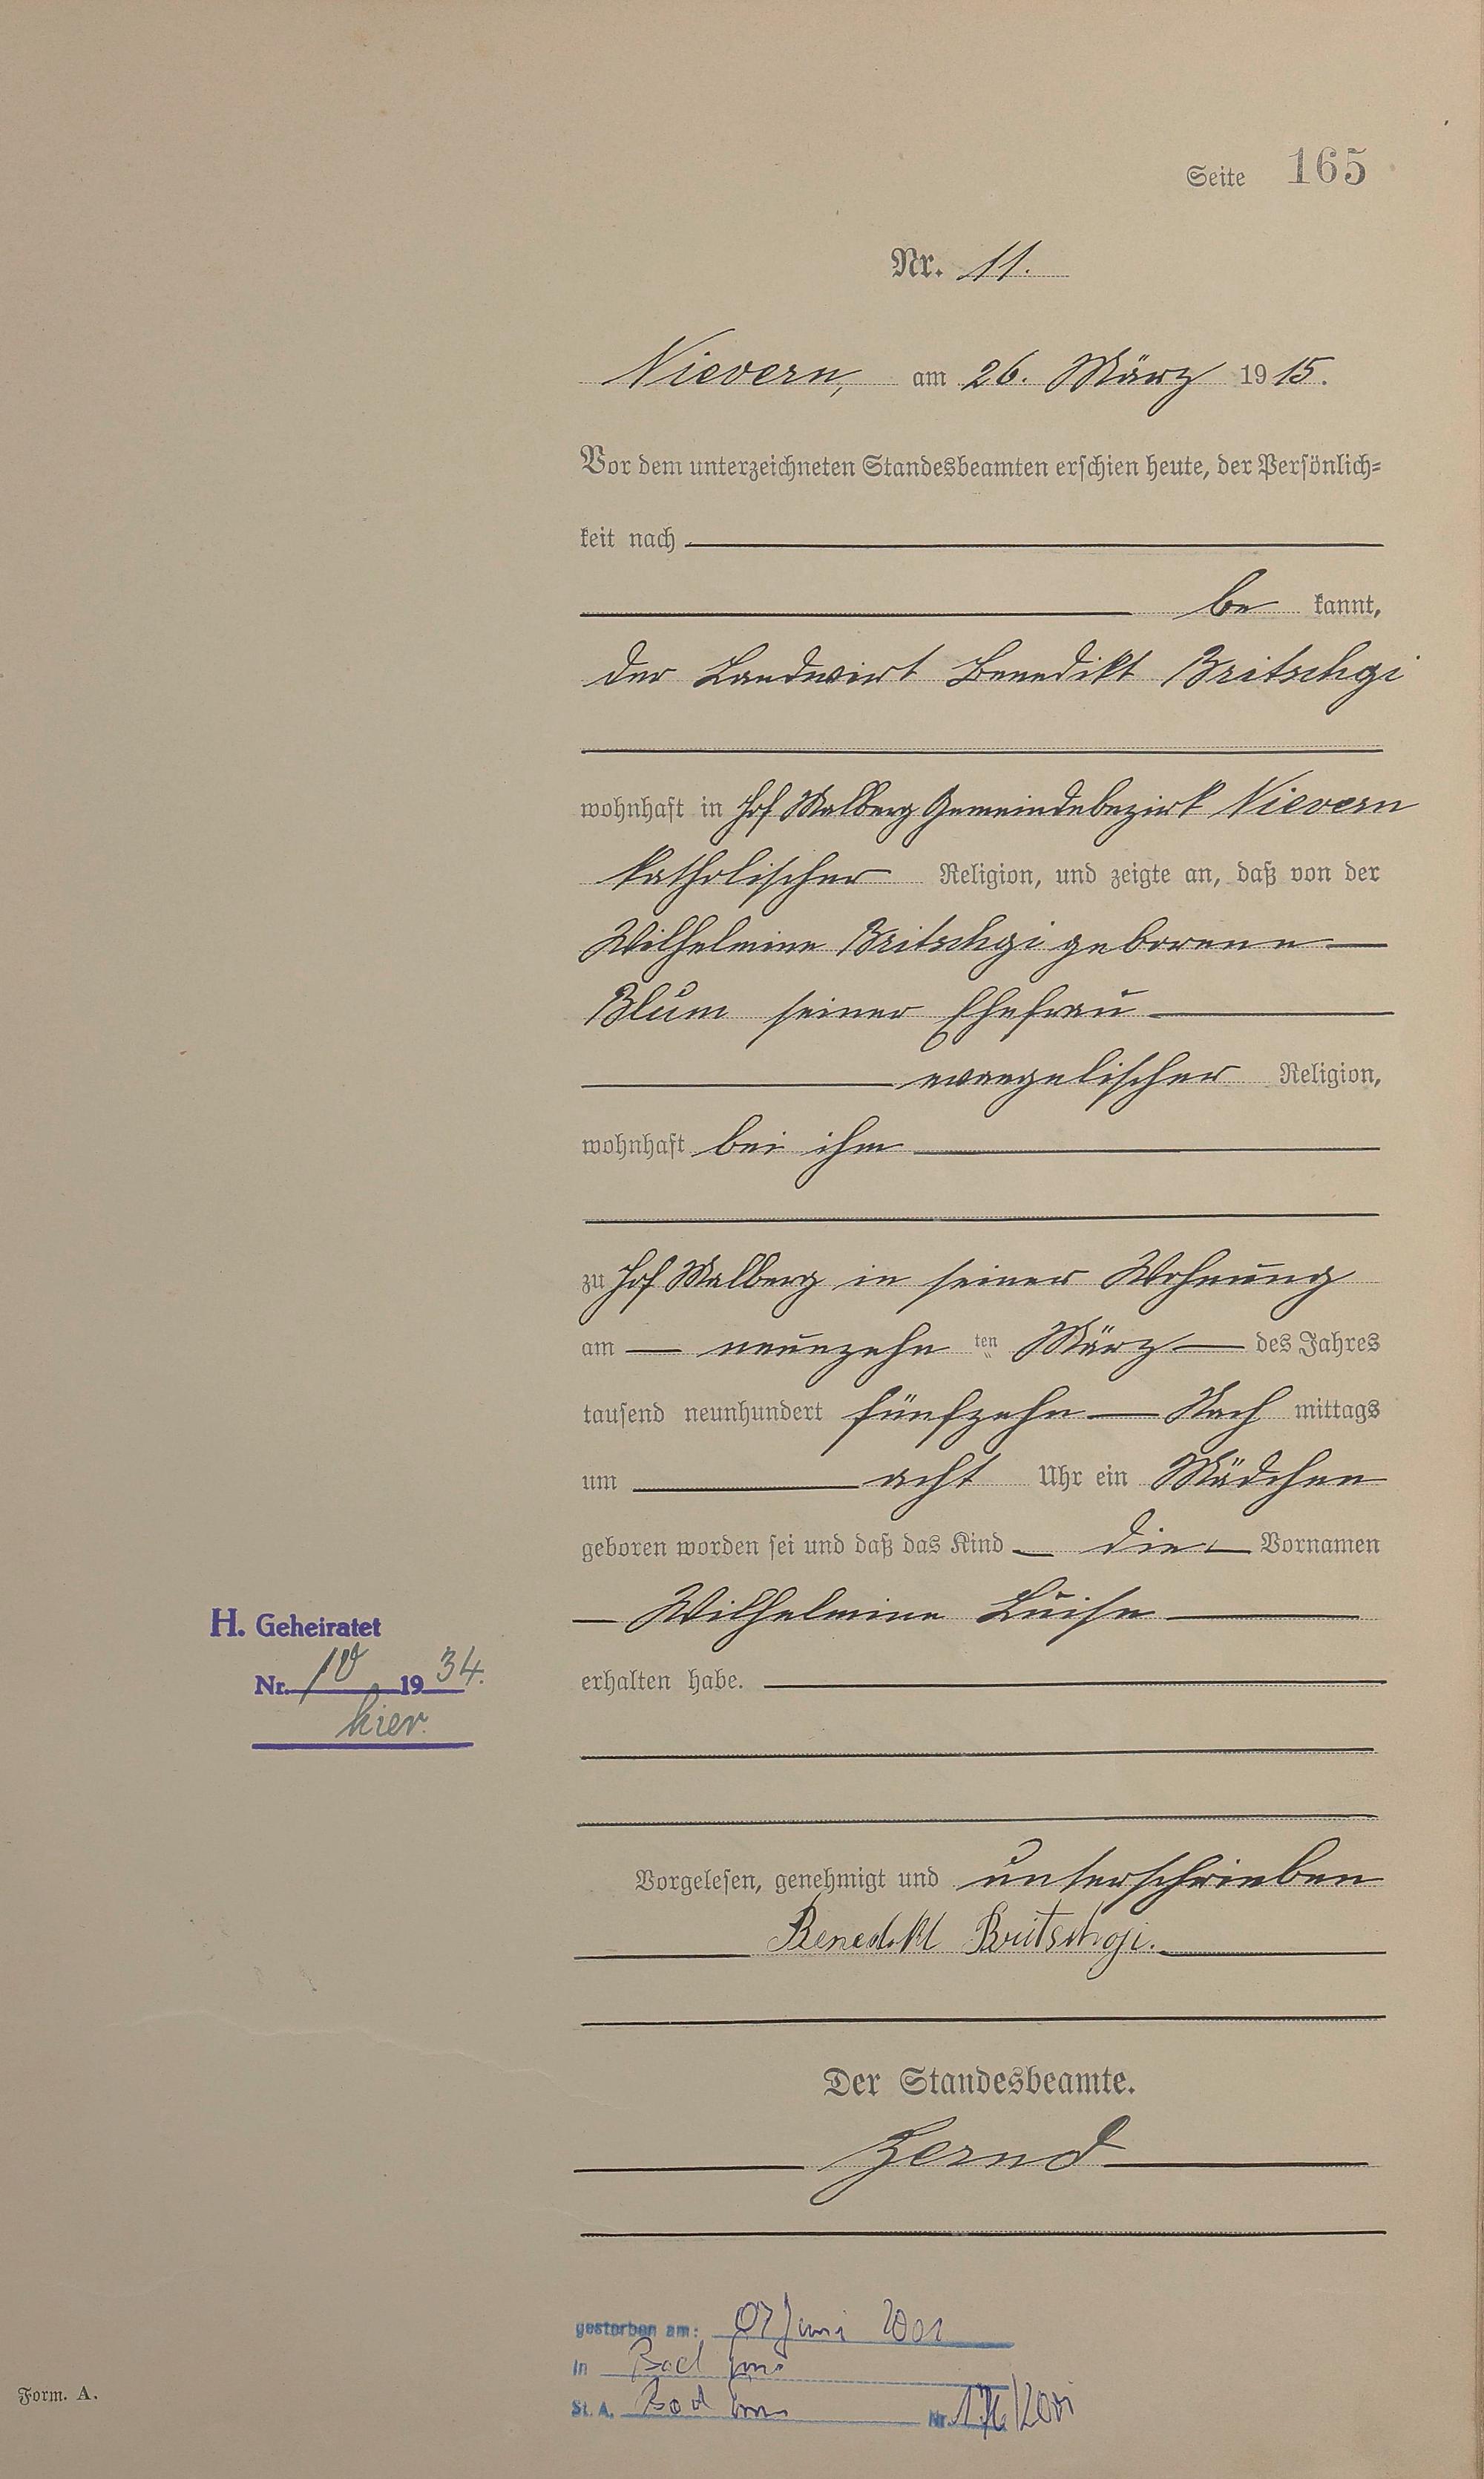 Seite 165
Nr. 11.
Nievern, am 26. März 1915.
Vor dem unterzeichneten Standesbeamten erschien heute, der Persönlich-
keit nach
be kannt,
der Landwirt Benedikt Britschgi
wohnhaft in Hof Malberg Gemeindebezirk Nievern
katholischer Religion, und zeigte an, daß von der
Wilhelmine Britschgi geborene
Blum seiner Ehefrau
evangelischer Religion,
wohnhaft bei ihm
zu Hof Malberg in seiner Wohnung
am neunzehn ten März des Jahres
tausend neunhundert fünfzehn Nach mittags
um acht Uhr ein Mädchen
geboren worden sei und daß das Kind die Vornamen
Wilhelmine Luise
erhalten habe.
H. Geheiratet
Nr. 10 1934.
hier.
Vorgelesen, genehmigt und unterschrieben
Benedikt Britschgi.
Der Standesbeamte.
gestorben am: 07 Juni 2001
in Bad Ems
St. A. Bad Ems Nr. /2001
Form. A.